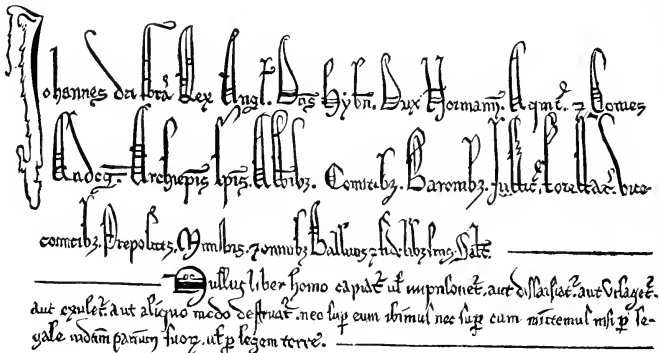 Johannes dei gra Rex Angl. Dns Hybn. Dux Normann. Aqut. ⁊ Comes
Andeg. Archiepis epis. Abbibz. Comitibz. Baronibz. Justic. Forestar. vice
comitibz. Prepositis. Ministris. ⁊ omnibz Ballivis ⁊ fidelibz suis. Salt.
Nullus liber homo capiatr. ul imprisonetr. aut dissaisiatr. aut utlagetr.
aut exuletr. aut aliquo modo destruatr. nec sup eum ibimus nec sup eum mittemus nisi p le
gale iudicium parium suorz. ul p legem terre.